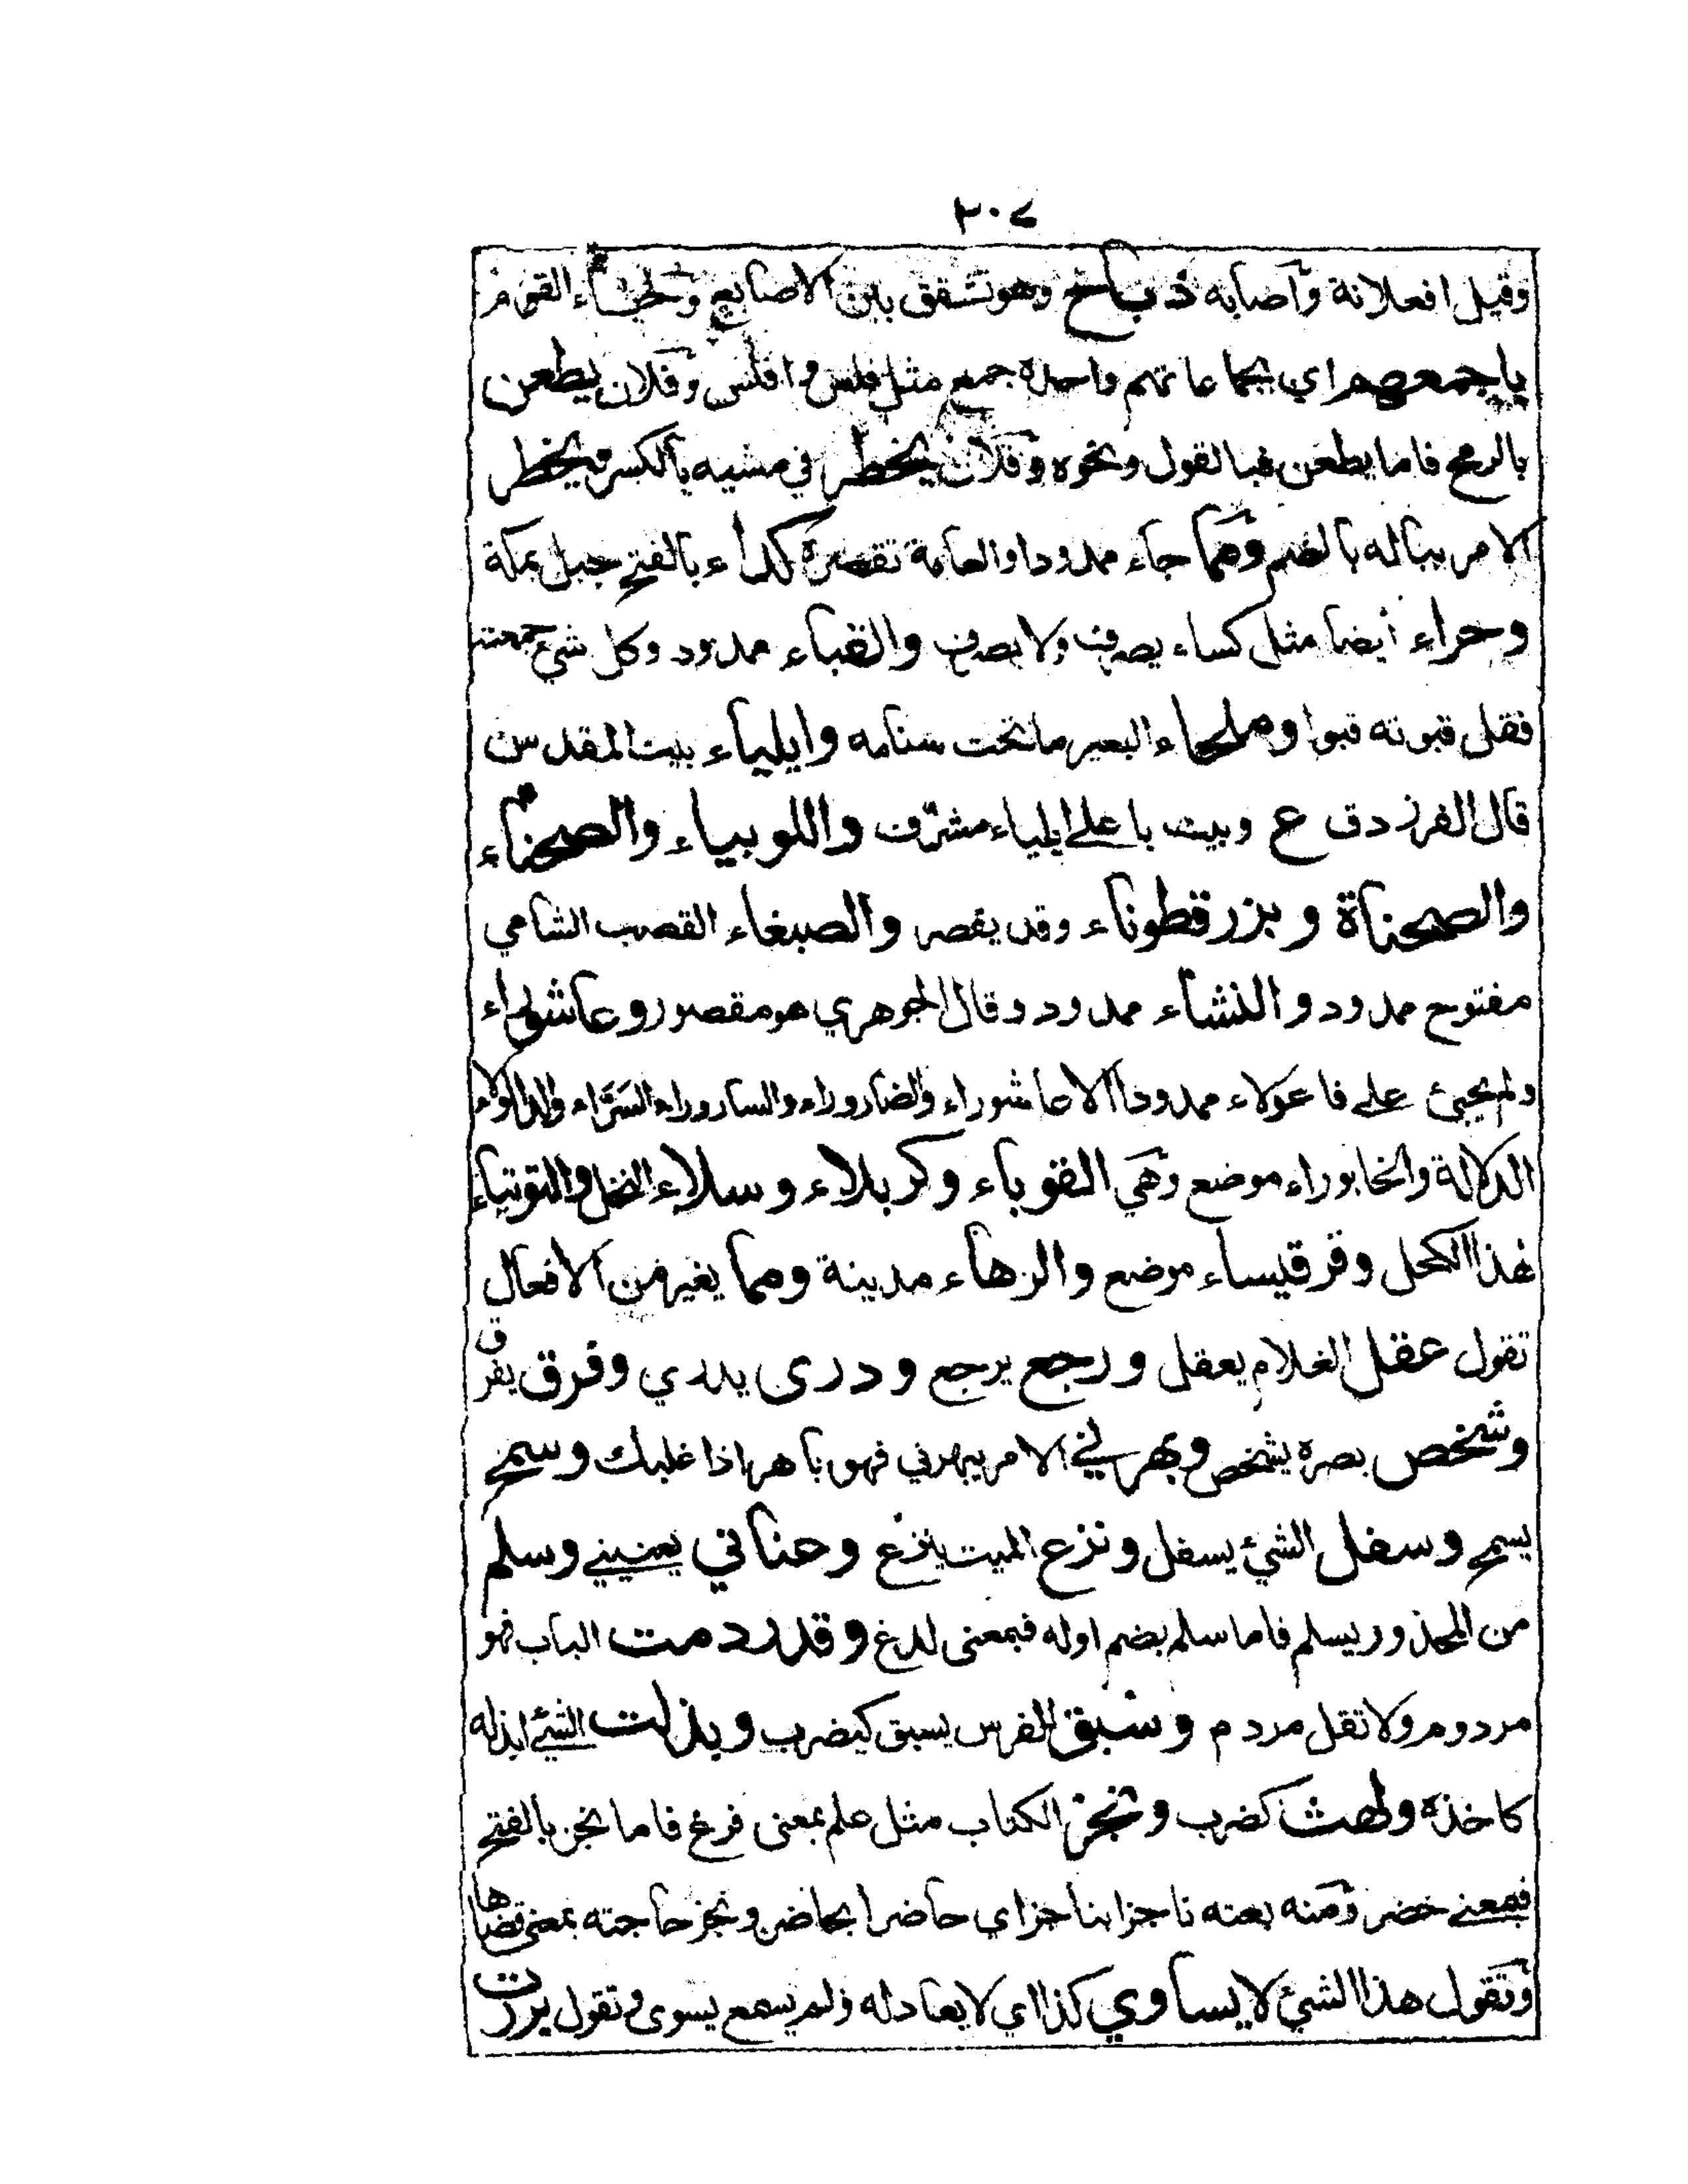 ٣٠٧
وقيل افعلانة وأصابه ذباخ وهو تشقق بين الاصابع وجاء القوم
باجمعهم اي بجماعاتهم واحدة جمع مثل فلس وافلس وفلان يطعن
بالرمح فاما يطعن فبالقول ونحوه وفلان يخطر في مشيه بالكسر ويخطر
الامر بباله بالضم ومما جاء ممدودا والعامة تقصره كداء بالفتح جبل بمكة
وحراء أيضا مثل كساء يصرف ولا يصرف والقباء ممدود وكل شيء جمعته
فقل قبوته قبوا وملحاء البعير ما تحت سنامه وايلياء بيت المقدس
قال الفرزدق ع وبيت باعلى ايلياء مشرّف واللوبياء والصحناء
والصحناة وبزر قطوناء وقد يقصر والصبغاء القصب الشامي
مفتوح ممدود والنشاء ممدود وقال الجوهري هو مقصور وعاشوراء
ولم يجيئ على فاعولاء ممدودا الا عاشوراء والضاروراء والساروراء السرّاء والدالولاء
الدلالة والخابوراء موضع وهي القوباء وكربلاء وسلاء النخل والتوتياء
لهذا الكحل وقرقيساء موضع والرهاء مدينة ومما يغير من الافعال
تقول عقل الغلام يعقل ورجع يرجع ودرى يدري وفرق يفرق
وشخص بصره يشخص وبهرني الامر يبهرني فهو باهر اذا غلبك وسمح
يسمح وسفل الشيئ يسفل ونزع الميت ينزع وعناني يعنيني وسلم
من المحذور يسلم فاما سلم بضم اوله فبمعنى لدغ وقد ردمت الباب فهو
مردوم ولا تقل مردم وسبق الفرس يسبق كيضرب وبذلت الشيئ ابذله
كاخذه ولهث كضرب ونجز الكتاب مثل علم بمعنى فرغ فاما نجز بالفتح
فبمعنى حضر ومنه بعته ناجزا بناجز اي حاضرا بحاضر ونجز حاجته بمعنى قضاها
وتقول هذا الشيئ لا يساوي كذا اي لا يعادله ولم يسمع يسوى وتقول بررت